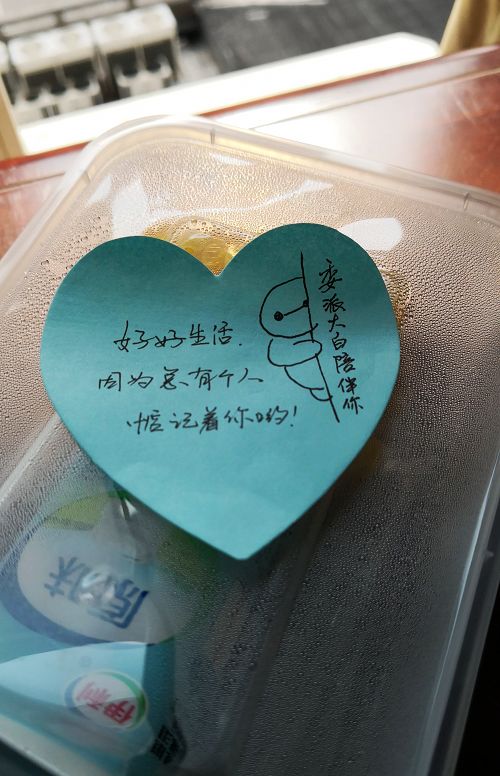 好好生活.
因为总有个人
惦记着你哟!
委派大白陪伴你
原味
伊利